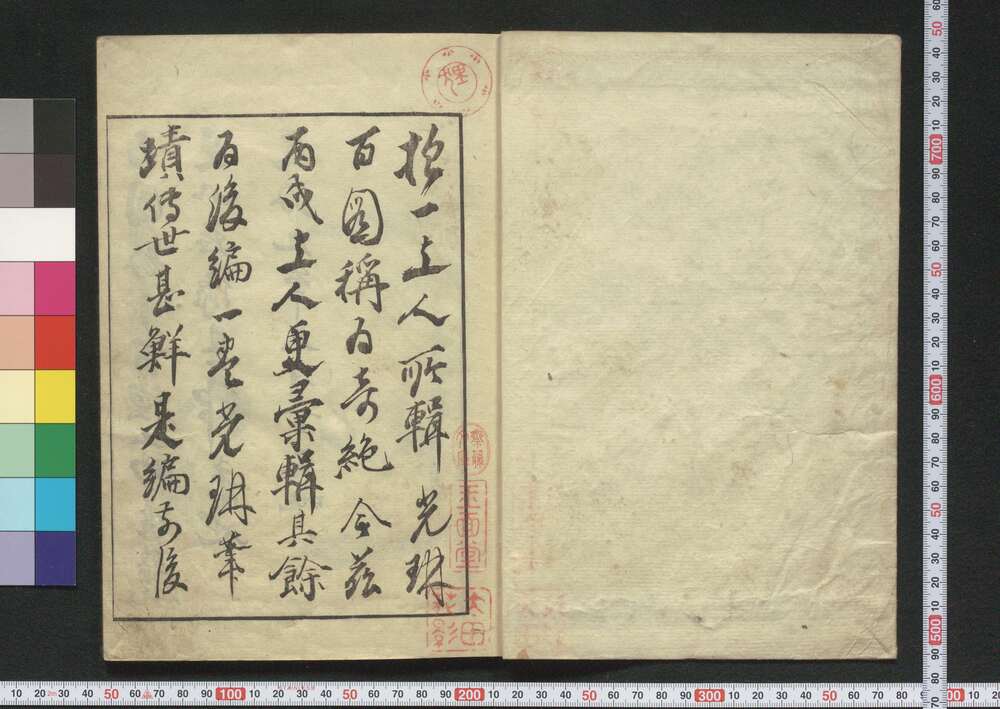 抱一上人所輯光琳
百圖稱為奇絶今茲
丙戌上人更彙輯其餘
為後編一卷光琳筆
蹟傳世甚鮮是編前後